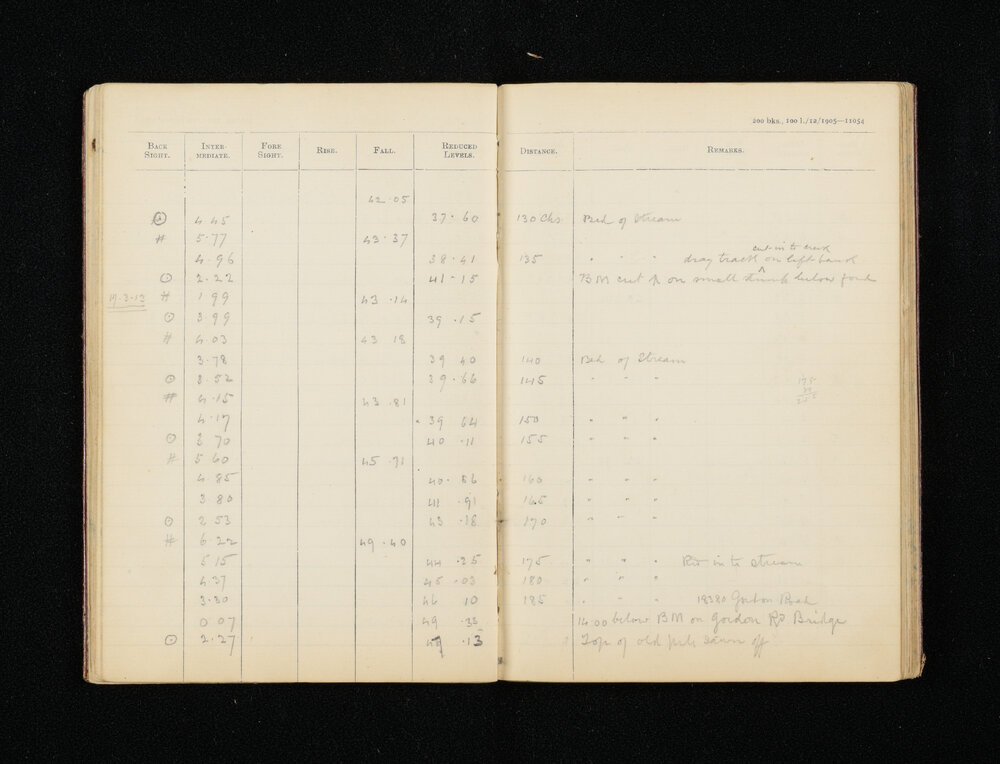 200 bks., 100 l./12/1905—11054
BACK SIGHT. INTERMEDIATE. FORE SIGHT. RISE. FALL. REDUCED LEVELS. DISTANCE. REMARKS.
42.05
⊙ 4.45 37.60 130 Chs Bed of Stream
# 5.77 43.37
cut in to creek
4.96 38.41 135 " " " dray track ^ on left bank
⊙ 2.22 41-15 BM cut on small stump below ford
19.3.13 # 1 99 43.14
⊙ 3 99 39.15
# 4.03 43 18
3.78 39 40 140 Bed of Stream
⊙ 3.52 39.66 145 " " "
# 4.15 43.81
4.17 39 64 150 " " "
⊙ 3 70 40.11 155 " " "
# 5 60 45.71
4.85 40.86 160 " " "
3.80 41.91 165 " " "
⊙ 2 53 43.18 170 " " "
# 6.22 49.40
5 15 44.25 175 " " " Rd in to stream
4 37 45.03 180 " " "
3.30 46 10 185 " " " Gordon Road
0 07 49.33 14.00 below BM on Gordon Rd Bridge
⊙ 2.27 47.13 Top of old pile sawn off